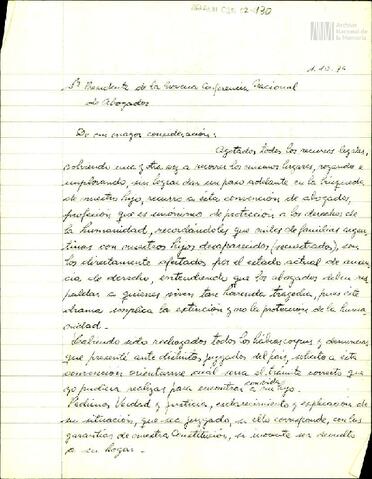 Archivo
Nacional de
la Memoria
Sr Presidente de la Novena Conferencia Nacional
de Abogados
De mi mayor consideración:
Agotados todos los recursos legales,
volviendo una y otra vez a recorrer los mismos lugares, rogando e
implorando, sin lograr dar un paso adelante en la búsqueda
de nuestro hijo, recurro a ésta convención de abogados,
profesión que es sinónimo de protección a los derechos de
la humanidad, recordándoles que miles de familias argen
tinas con nuestros hijos desaparecidos (secuestrados), son
los directamente afectados por el estado actual de ausen
cia de derecho, entendiendo que los abogados deben res
paldar a quienes viven tan tragedia, pues este
drama implica la extinción y no la protección de la huma
nidad.
Habiendo sido rechazados todos los hábeas corpus y denuncias
que presenté ante distintos juzgados del país, solicito a esta
convención orientarme cuál sería el trámite correcto que
yo pudiera realizar para encontrar con vida a mi hijo.
Pedimos Verdad y Justicia, esclarecimiento y explicación de
su situación, que sea juzgado, si ello corresponde, con las
garantías de nuestra Constitución, si inocente sea devuelto
a su hogar.-